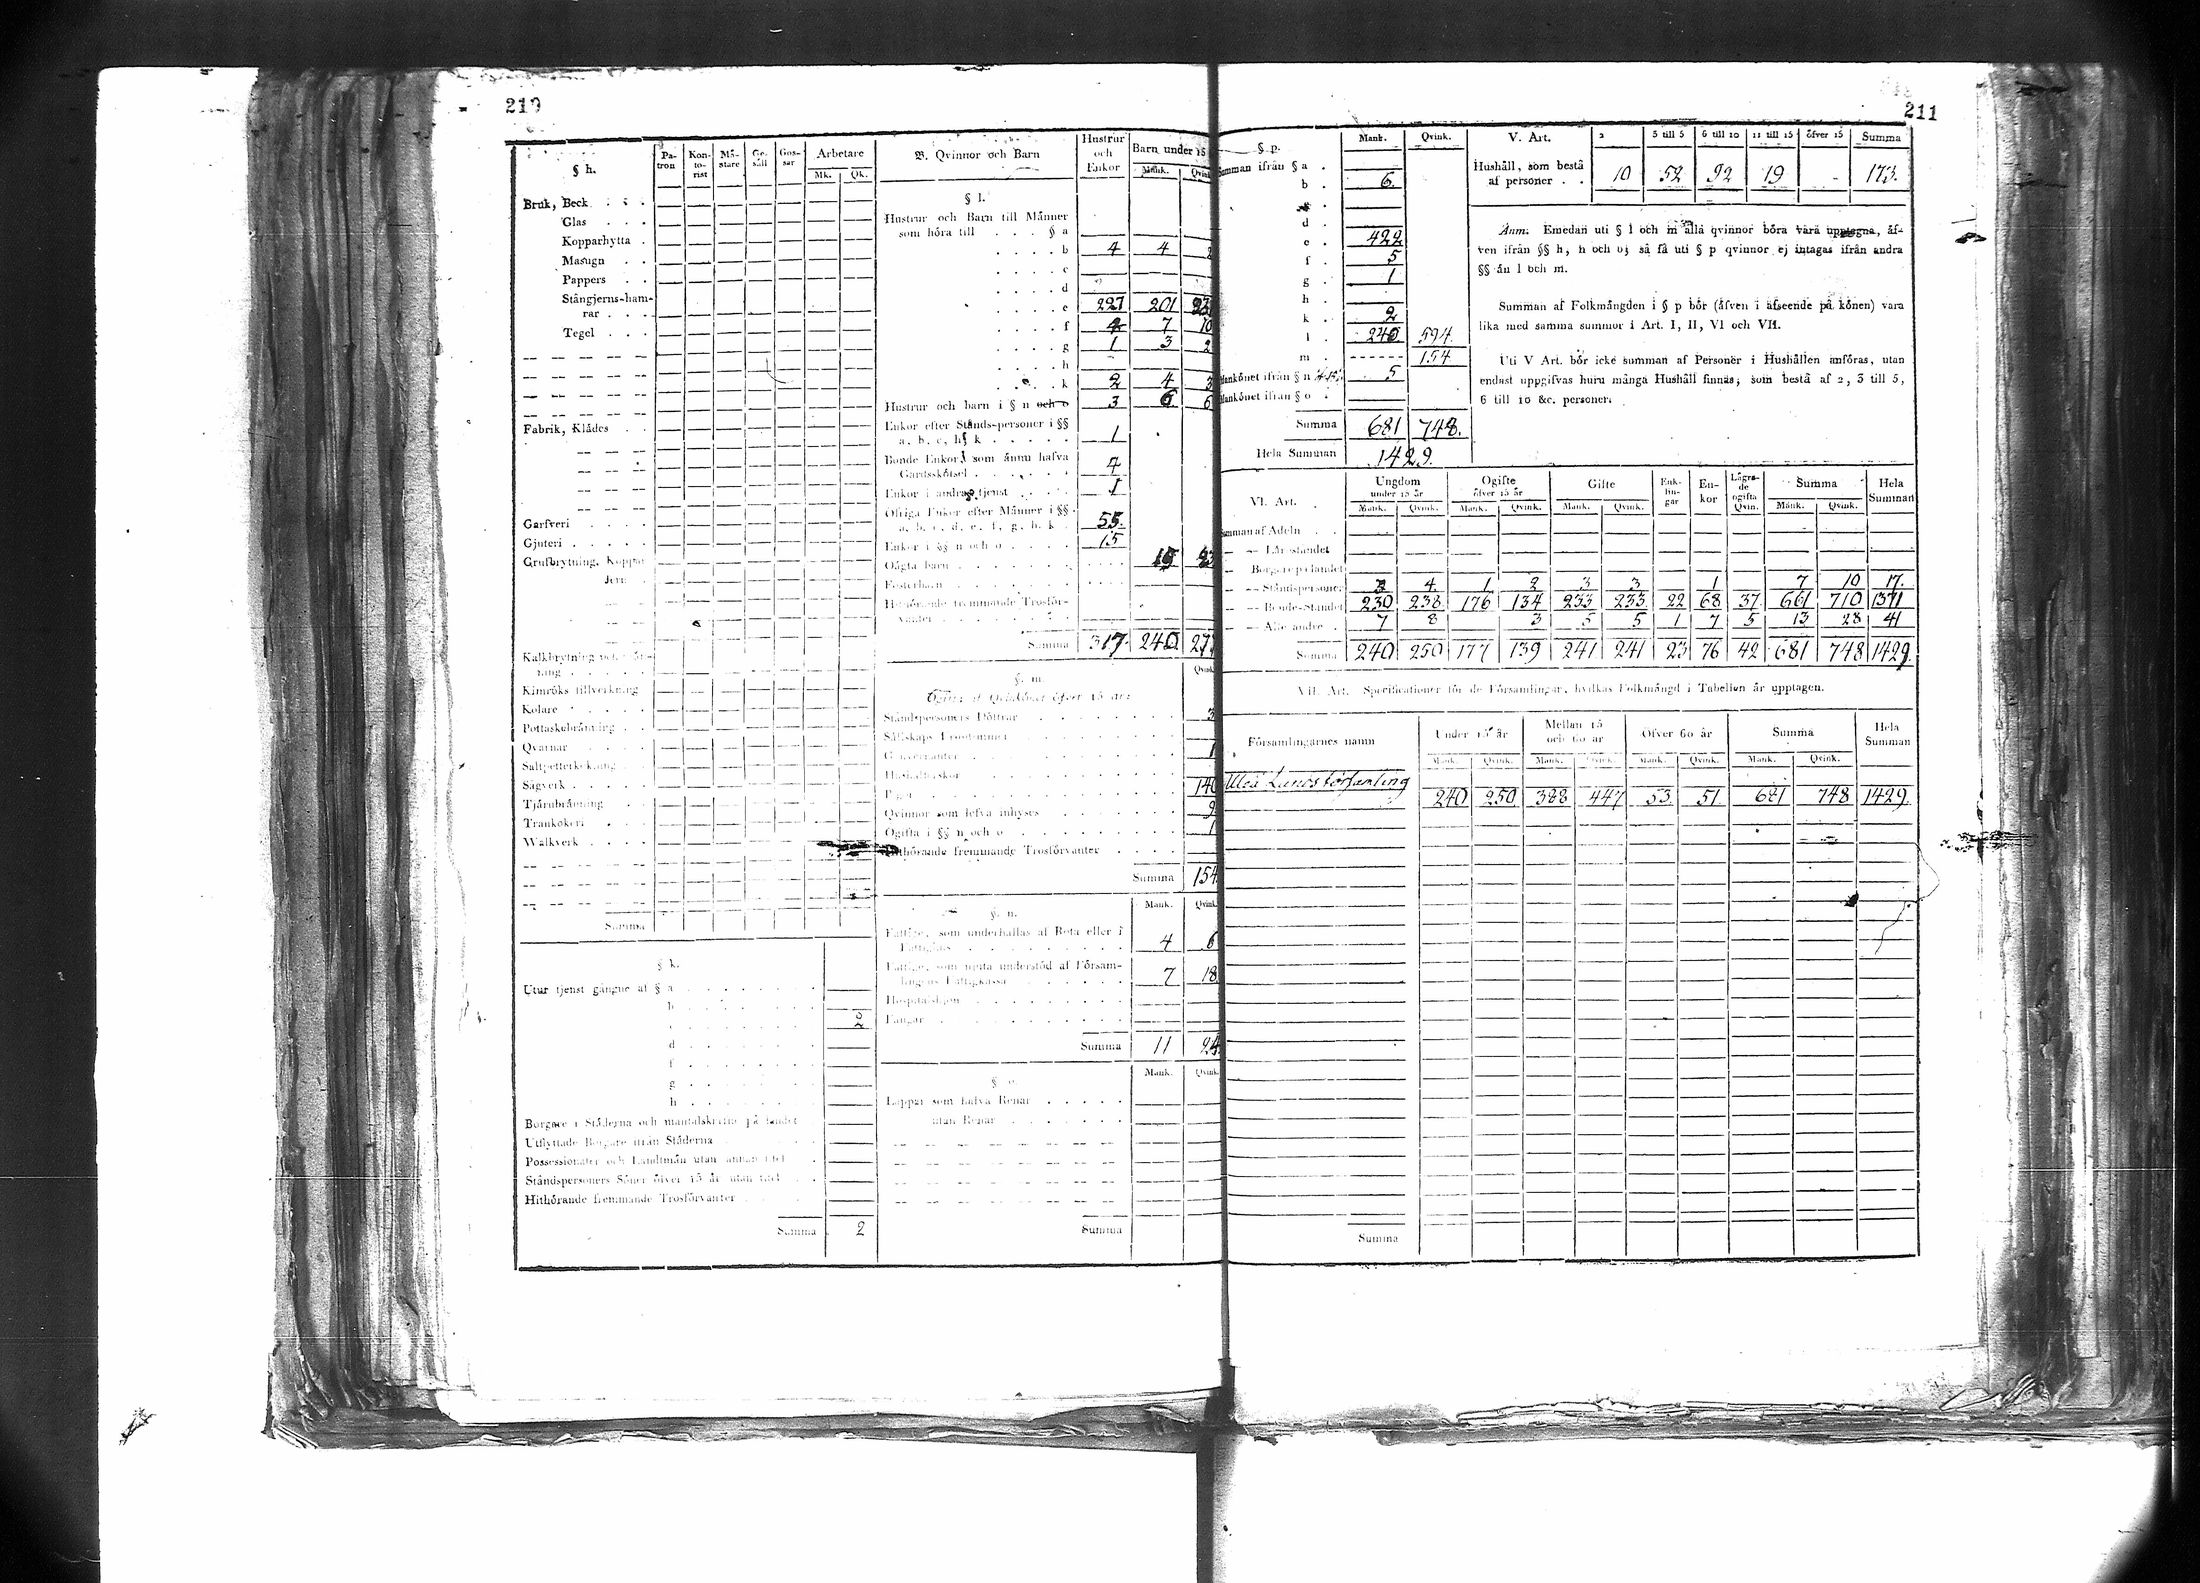 210
§ h.
Pa-
tron
Kon-
to-
rist
Må-
stare
Ge-
säll
Gos-
sar
Arbetare
Mk. Qk.
Bruk, Beck . . .
Glas . . .
Kopparhytta .
Masugn . .
Pappers . .
Stångjerns-ham-
rar . . .
Tegel . . .
Fabrik, Klädes . .
Garfveri . . . .
Gjuteri . . . . .
Grufbrytning, Koppar
Jern .
Kimröks tillverkning
Kolare . . . . .
Pottaskebränning . .
Qvarnar . . . .
Saltpetterkokning . .
Sågverk . . . . .
Tjärubränning . .
Trankokeri . . .
Walkverk . . . .
Summa
§ k.
Utur tjenst gångne af § a . . . . . . . .
b . . . . . . .
2
d . . . . . . .
f . . . . . . .
g . . . . . . .
h . . . . . . .
Borgare i Städerna och mantalskrifne på landet
Utflyttade Borgare ifrån Städerna
Possessionater och Landtmän utan annan titel
Ståndspersoners Söner öfver 15 år utan titel
Hithörande fremmande Trosförvanter
Summa 2
B. Qvinnor och Barn
Hustrur
och
Enkor
Barn under 15
Mank. Qvink.
§ l.
Hustrur och Barn till Männer
som höra till . . . § a
. . . . b 4 4 2
. . . . c
. . . . d
. . . . e 227 201
. . . . f 7 10
. . . . g 1 3 2
. . . . h
. . . . k 2 4 3
Hustrur och barn i § n och o 3 6 6
Enkor efter Stånds-personer i §§
a, b, c, h, k . . . . . 1
Bonde Enkor, som ännu hafva
Gårdsskötsel . . . . . .
Enkor i andras tjenst . . . . 1
Öfriga Enkor efter Männer i §§
a, b, c, d, e, f, g, h, k . 55.
Enkor i §§ n och o . . . . 15
Oägta barn . . . . . . .
Fosterbarn . . . . . . .
Hithörande fremmande Trosför-
vanter . . . . . . .
Summa 317. 240. 277
§. m. Qvink.
Ogifta af Qvinkönet öfver 15 år:
Ståndspersoners Döttrar . . . . . . . 3
Sällskaps Fruntimmer . . . . . . .
Gouvernanter . . . . . . . . 1
Hushållerskor . . . . . . . .
Pigor . . . . . . . . . . 140
Qvinnor som lefva inhyses . . . . . . 9
Ogifta i §§ n och o . . . . . . . . 1
Hithörande fremmande Trosförvanter . . . .
Summa 154.
§. n. Mank. Qvink.
Fattige, som underhållas af Rota eller i
Fattighus . . . . . . . . . 4 6
Fattige, som njuta understöd af Försam-
lingens Fattigkassa . . . . . . 7 18
Hospitalshjon . . . . . . . .
Fångar . . . . . . . . . .
Summa 11 24.
§ o. Mank. Qvink.
Lappar som hafva Renar . . . . .
utan Renar . . . . . . .
Summa
211
§ p. Mank. Qvink.
Summan ifrån § a .
b . 6.
d .
e . 422
f . 5
g . 1
h .
k . 2
l . 240 594.
m . ------ 154
Mankönet ifrån § n 5
Mankönet ifrån § o .
Summa 681 748.
Hela Summan 1429.
V. Art. 2 3 till 5 6 till 10 11 till 15 öfver 15 Summa
Hushåll, som bestå
af personer . . 10 52 92 19 - 173.
Anm. Emedan uti § l och m alla qvinnor böra vara upptagna, äf-
ven ifrån §§ h, h och o; så få uti § p qvinnor ej intagas ifrån andra
§§ än l och m.
Summan af Folkmängden i § p bör (äfven i afseende på könen) vara
lika med samma summor i Art. I, II, VI och VII.
Uti V Art. bör icke summan af Personer i Hushållen anföras, utan
endast uppgifvas huru många Hushåll finnas, som bestå af 2, 3 till 5,
6 till 10 &c. personer.
VI. Art. .
Ungdom
under 15 år
Ogifte
öfver 15 år
Gifte
Enk-
lin-
gar
En-
kor
Lägra-
de
ogifta
Qvin.
Summa
Hela
Summan
Mank. Qvink. Mank. Qvink. Mank. Qvink. Mank. Qvink.
Summan af Adeln . .
— — Lärståndet
— Borgare på landet
— — Ståndspersoner 3 4 1 2 3 3 1 7 10 17.
— — Bonde-Ståndet 230 238 176 134 233 233 22 68 37 661 710 1371
— — Alle andre . 7 8 3 5 5 1 7 5 13 28 41
Summa 240 250 177 139 241 241 23 76 42 681 748 1429.
VII. Art. Specificationer för de Församlingar, hvilkas Folkmängd i Tabellen är upptagen.
Församlingarnes namn
Under 15 år
Mellan 15
och 60 år
Öfver 60 år
Summa
Hela
Summan
Mank. Qvink. Mank. Qvink. Mank. Qvink. Mank. Qvink.
Uleå Landsförsamling 240 250 388 447 53. 51. 681 748 1429.
Summa